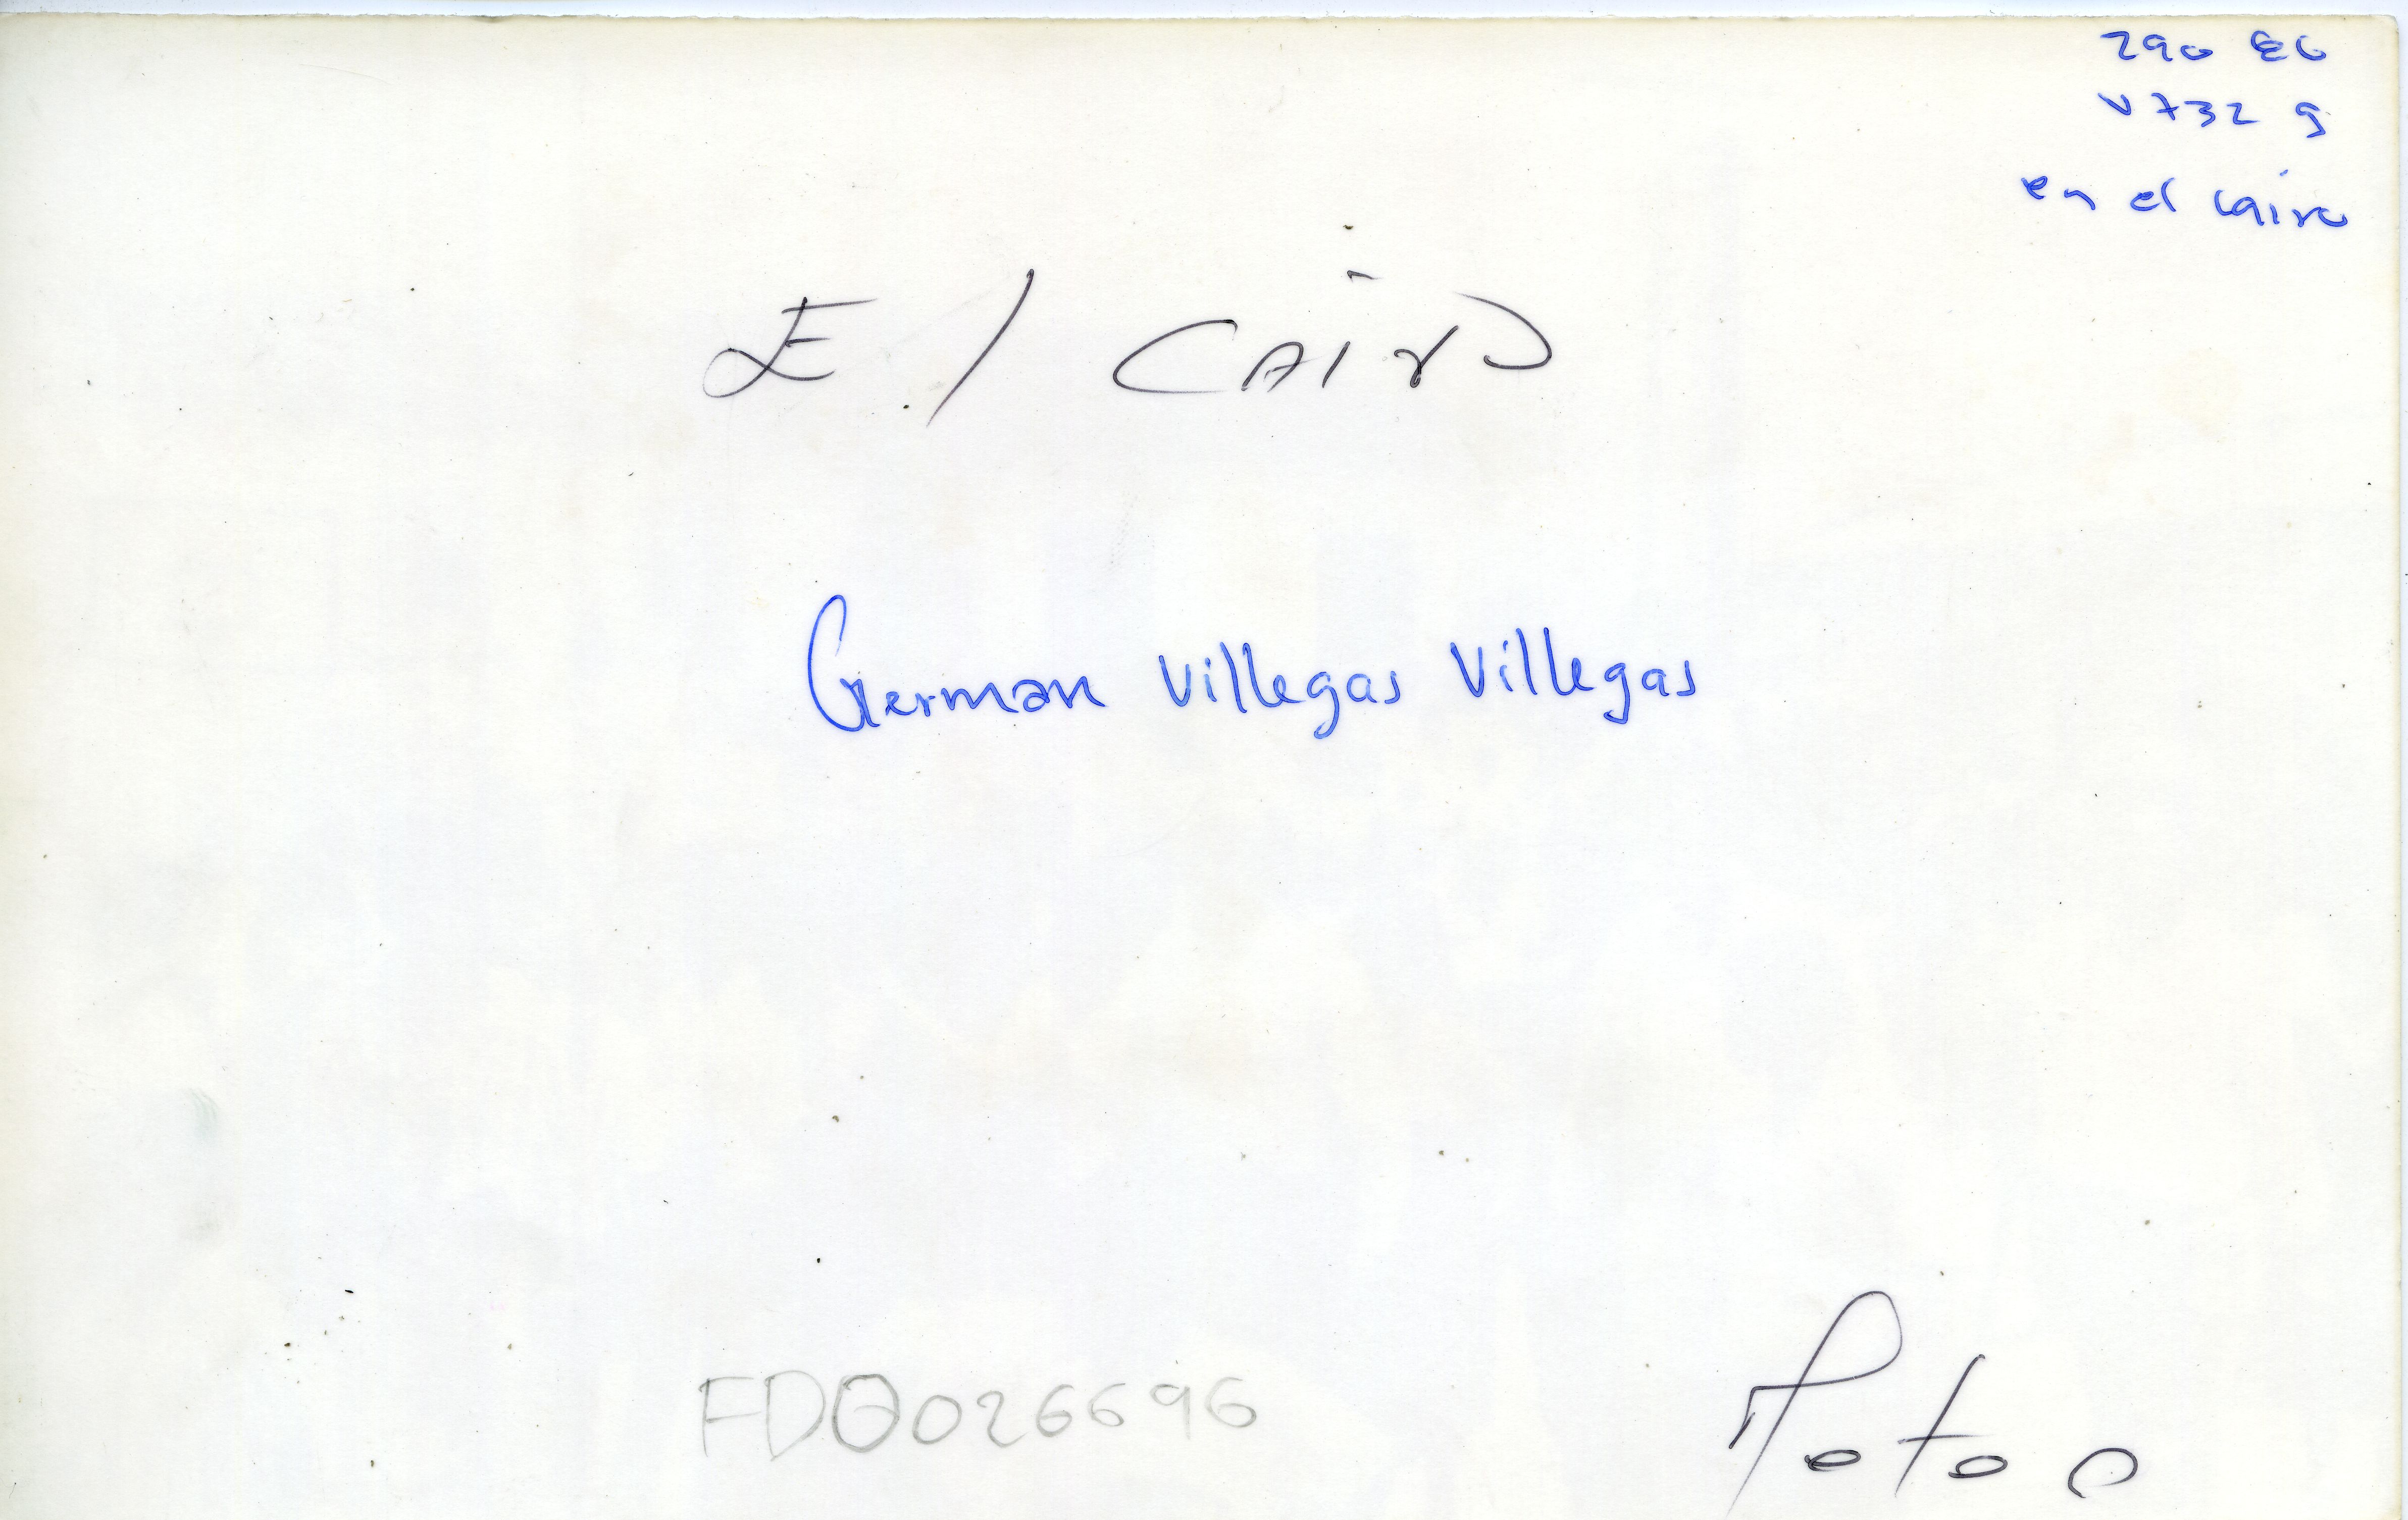 290 86
V732 g
en el cairo
El CAiro
German Villegas Villegas
FDO026696